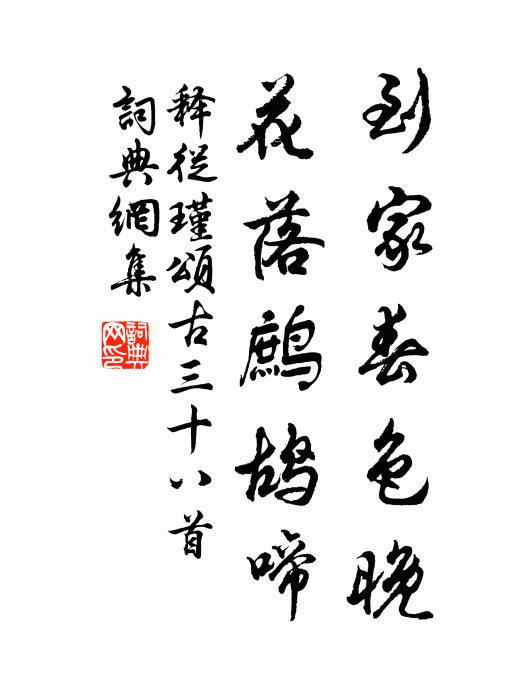 到家春色晚
花落鷓鴣啼
释從瑾頌古三十八首
詞典網集
詞典网印